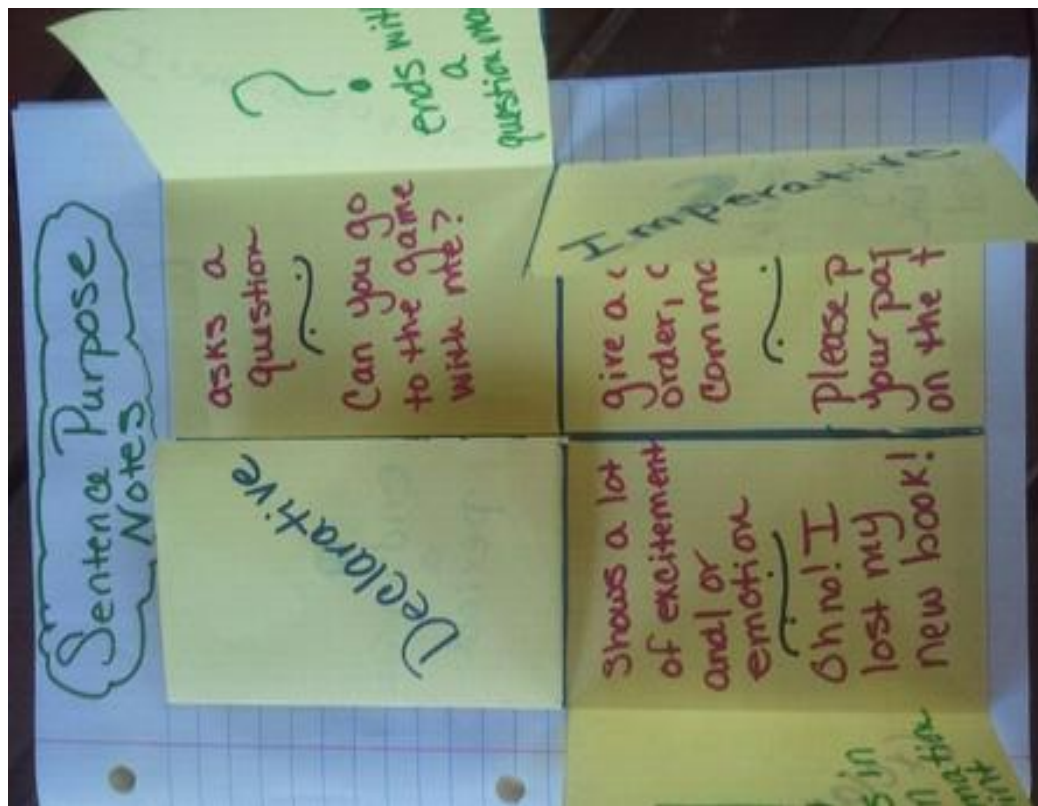 Sentence Purpose
Notes
Declarative
asks a
question
Can you go
to the game
with me?
?
ends
a
question
Shows a lot
of excitement
and/or
emotion
Oh no! I
lost my
new book!
in
give a
order,
Please
your
on the
Imperative